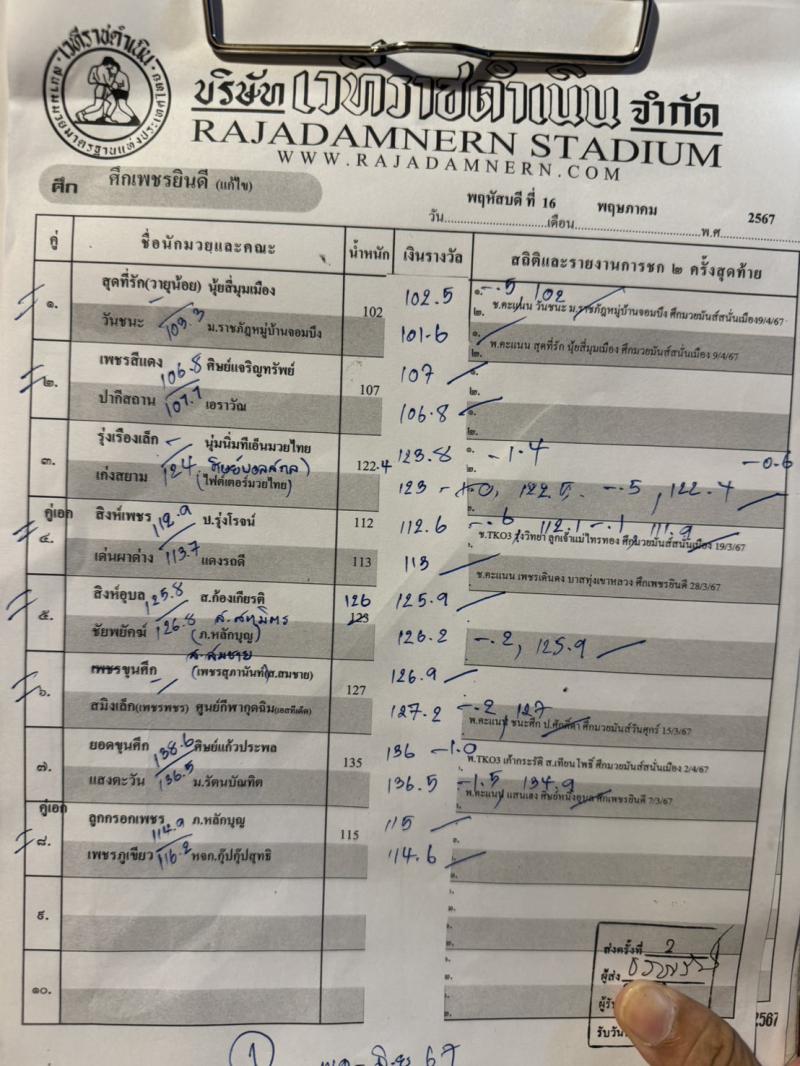 เวทีราชดำเนิน
บริษัท เวทีราชดำเนิน จำกัด
RAJADAMNERN STADIUM
WWW.RAJADAMNERN.COM
ศึก ศึกเพชรยินดี (แก้ไข)
วัน พฤหัสบดี ที่ 16 เดือน พฤษภาคม พ.ศ. 2567
คู่ ชื่อนักมวยและคณะ น้ำหนัก เงินรางวัล สถิติและรายงานการชก ๒ ครั้งสุดท้าย
๑. สุดที่รัก(วายุน้อย) นุ้ยสี่มุมเมือง 102 102.5 ๑. -.5 102
๒. ช.คะแนน วันชนะ ม.ราชภัฎหมู่บ้านจอมบึง ศึกมวยมันส์สนั่นเมือง9/4/67
วันชนะ 103.3 ม.ราชภัฎหมู่บ้านจอมบึง 101.6 ๑.
๒. พ.คะแนน สุดที่รัก นุ้ยสี่มุมเมือง ศึกมวยมันส์สนั่นเมือง 9/4/67
๒. เพชรสีแดง 106.8 ศิษย์เจริญทรัพย์ 107 107 ๑.
๒.
ปากีสถาน 107.7 เอราวัณ 106.8 ๑.
๒.
๓. รุ่งเรืองเล็ก นุ่มนิ่มทีเอ็นมวยไทย 122.4 123.8 ๑. -1.4 -0.6
๒.
เก่งสยาม 124 (ไฟต์เตอร์มวยไทย) 123 122.4
คู่เอก
๔. สิงห์เพชร 112.9 ป.รุ่งโรจน์ 112 112.6 -.6 112.1 -.1 111.9
ช.TKO3 ลูกเจ้าแม่ไทรทอง ศึกมวยมันส์สนั่นเมือง 19/3/67
เด่นผาด่าง 113.7 แดงรถดี 113 113
ช.คะแนน เพชรเดินดง บาสทุ่งเขาหลวง ศึกเพชรยินดี 28/3/67
๕. สิงห์อุบล 125.8 ส.ก้องเกียรติ 126 125.9
ชัยพยัคฆ์ 126.8 ส.สหมิตร (ภ.หลักบุญ) 123 126.2 -.2, 125.9
ส.สมชาย
๖. เพชรขุนศึก (เพชรสุภานันท์)ส.สมชาย 127 126.9
สมิงเล็ก(เพชรพชร) ศูนย์กีฬากุดฉิม(เอสทีเด็ด) 127.2 -.2 127
พ.คะแนน ชนะศึก ป.ศักดิ์ดา ศึกมวยมันส์วันศุกร์ 15/3/67
๗. ยอดขุนศึก 138.6 ศิษย์แก้วประพล 135 136 -1.0
พ.TKO3 เก้ากระรัติ ส.เทียนโพธิ์ ศึกมวยมันส์สนั่นเมือง 2/4/67
แสงตะวัน 136.5 ม.รัตนบัณฑิต 136.5 -1.5 134.9
พ.คะแนน แสนเฮง ศึกเพชรยินดี 7/3/67
คู่เอก
๘. ลูกกรอกเพชร 114.9 ภ.หลักบุญ 115 115
เพชรภูเขียว 116.2 หจก.กุ๊ปกุ๊ปสุทธิ 114.6
๙.
๑๐.
ส่งครั้งที่ 2
ผู้ส่ง
ผู้รับ
รับวัน
2567
1